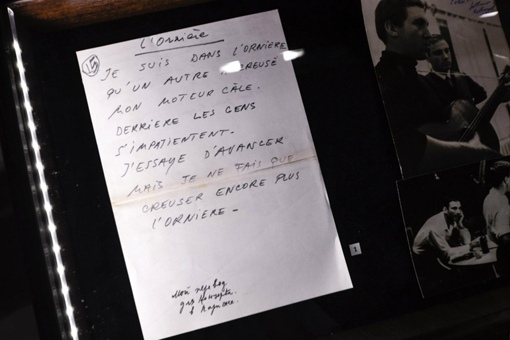 L'Ornière
15
JE SUIS DANS L'ORNIÈRE
QU'UN AUTRE CREUSÉ
MON MOTEUR CÂLE.
DERRIERE LES GENS
S'IMPATIENTENT.
J'ESSAYE D'AVANCER
MAIS JE NE FAIS QUE
CREUSER ENCORE PLUS
L'ORNIERE -
Мой перевод
для концерта
в Париже.
1